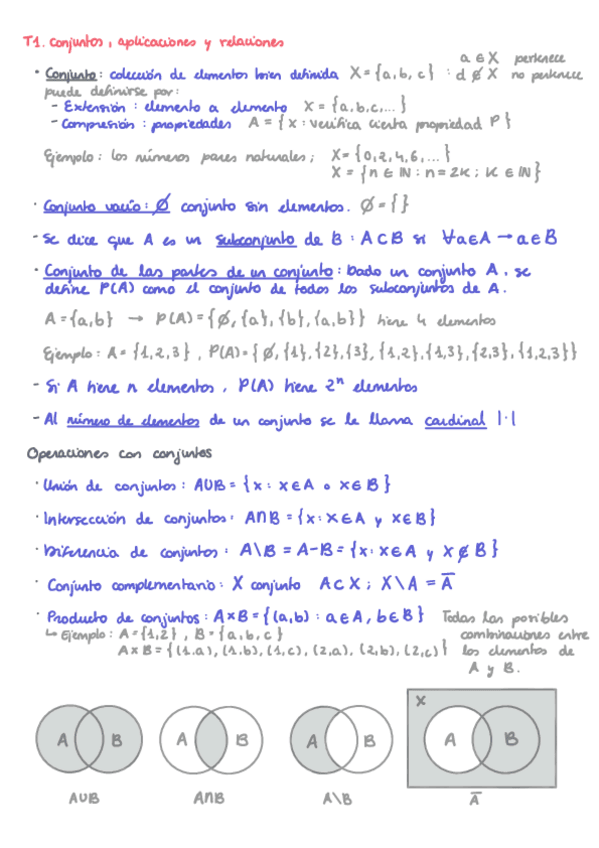 T1. Conjuntos, aplicaciones y relaciones
a ∈ X pertenece
· Conjunto: colección de elementos bien definida X = {a, b, c} : d ∉ X no pertenece
puede definirse por:
- Extensión: elemento a elemento X = {a, b, c, ...}
- Compresión: propiedades A = {x : verifica cierta propiedad P}
Ejemplo: los números pares naturales; X = {0, 2, 4, 6, ...}
X = {n ∈ ℕ : n = 2K ; K ∈ ℕ}
· Conjunto vacío: Ø conjunto sin elementos. Ø = {}
- Se dice que A es un subconjunto de B : A ⊂ B si ∀a ∈ A → a ∈ B
· Conjunto de las partes de un conjunto: Dado un conjunto A, se
define P(A) como el conjunto de todos los subconjuntos de A.
A = {a, b} → P(A) = {Ø, {a}, {b}, {a, b}} tiene 4 elementos
Ejemplo: A = {1, 2, 3} , P(A) = {Ø, {1}, {2}, {3}, {1, 2}, {1, 3}, {2, 3}, {1, 2, 3}}
- Si A tiene n elementos, P(A) tiene 2ⁿ elementos
- Al número de elementos de un conjunto se le llama cardinal |·|
Operaciones con conjuntos
· Unión de conjuntos: A∪B = {x : x ∈ A o x ∈ B}
· Intersección de conjuntos: A∩B = {x : x ∈ A y x ∈ B}
· Diferencia de conjuntos: A\B = A-B = {x : x ∈ A y x ∉ B}
· Conjunto complementario: X conjunto A ⊂ X ; X\A = A̅
· Producto de conjuntos: A×B = {(a, b) : a ∈ A, b ∈ B} Todas las posibles
↳ Ejemplo: A = {1, 2} , B = {a, b, c} combinaciones entre
A×B = {(1, a), (1, b), (1, c), (2, a), (2, b), (2, c)} los elementos de
A y B.
X
A B A B A B A B
A∪B A∩B A\B A̅